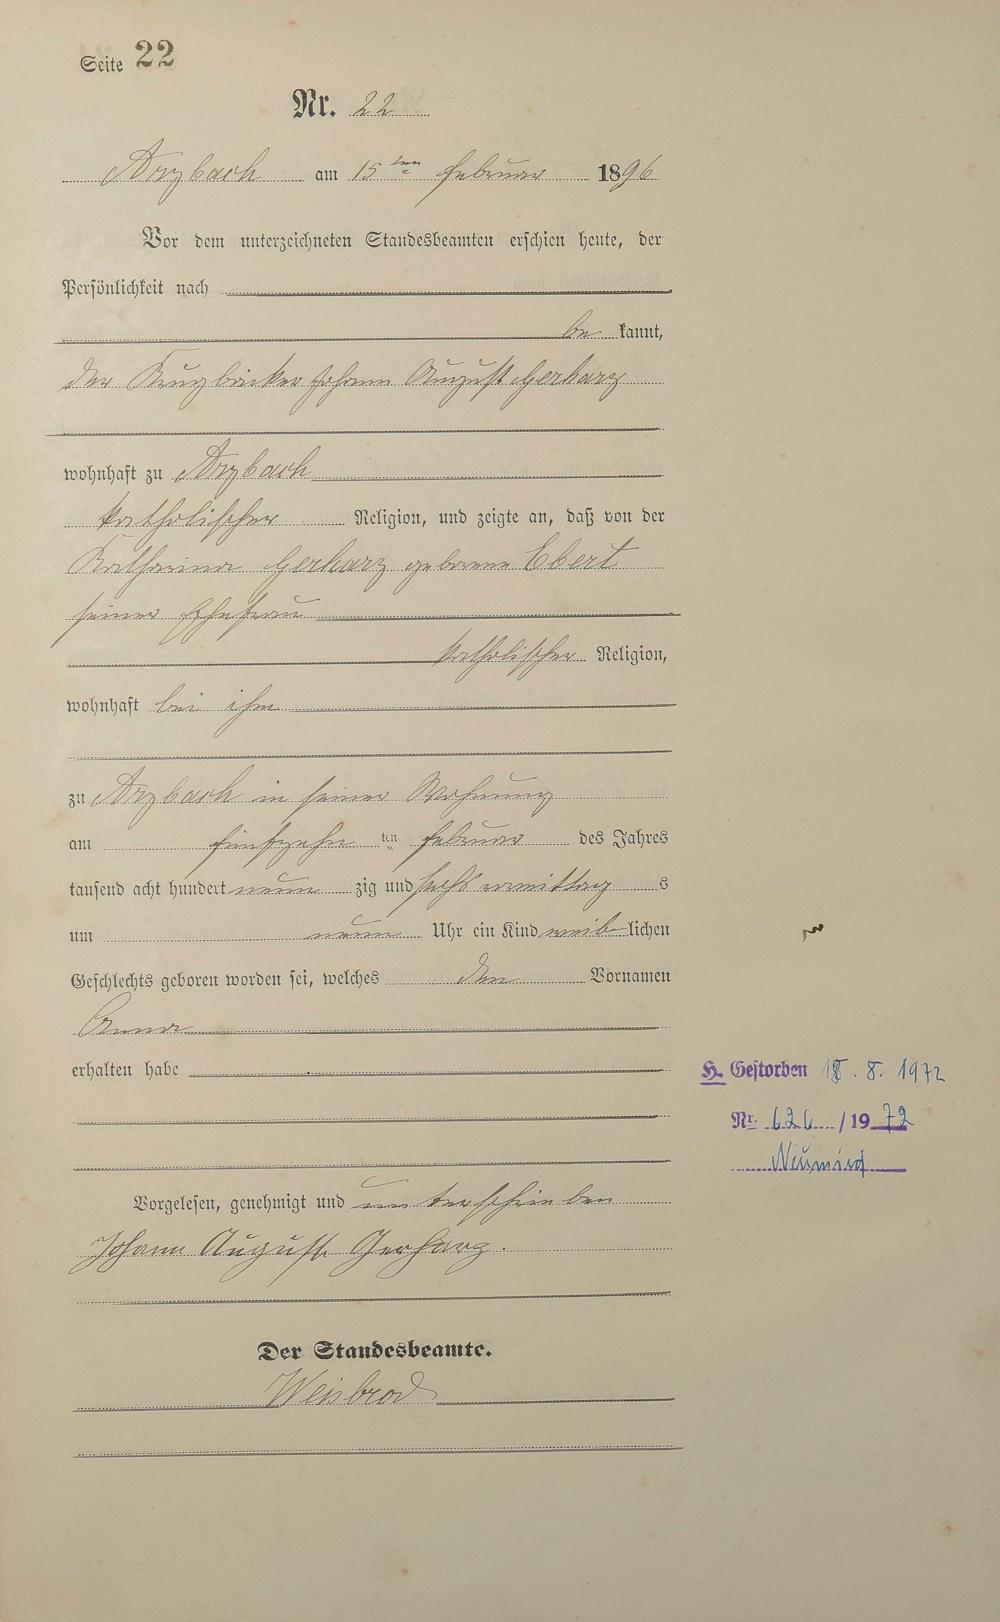 Seite 22
Nr. 22
Arzbach am 15ten Februar 1896
Vor dem unterzeichneten Standesbeamten erschien heute, der
Persönlichkeit nach
be kannt,
der Krugbäcker Johann August Gerharz
wohnhaft zu Arzbach
katholischer Religion, und zeigte an, daß von der
Katharina Gerharz geborene Ebert
seiner Ehefrau
katholischer Religion,
wohnhaft bei ihm
zu Arzbach in seiner Wohnung
am fünfzehn ten Februar des Jahres
tausend acht hundert neun zig und sechs vormittag s
um neun Uhr ein Kind weib lichen
Geschlechts geboren worden sei, welches den Vornamen
Anna
erhalten habe
H. Gestorben 18. 8. 1972
Nr. 626 /1972
Neuwied
Vorgelesen, genehmigt und unterschrieben
Johann August Gerharz.
Der Standesbeamte.
Weisbrod